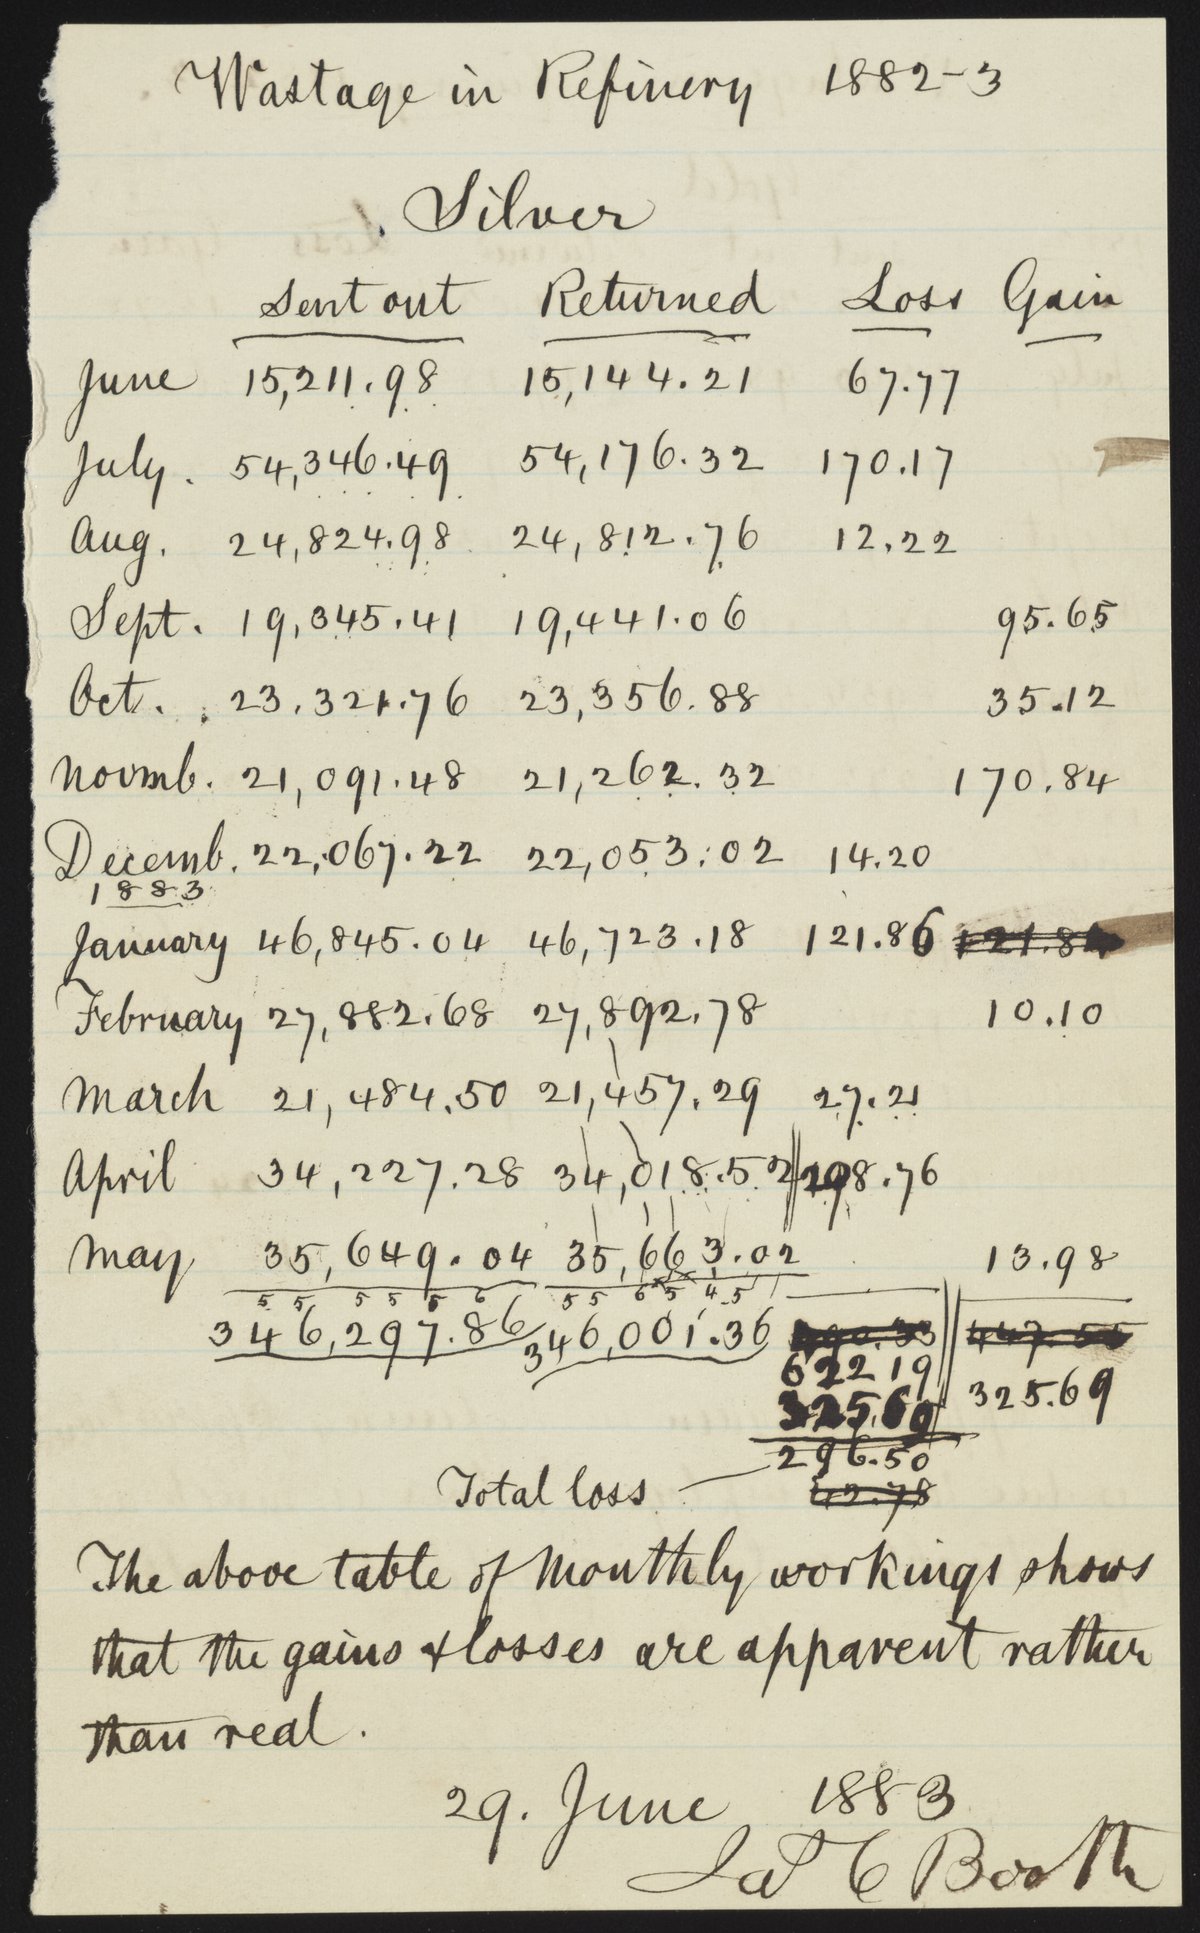 Wastage in Refinery 1882-3
Silver
Sent out Returned Loss Gain
June 15,211.98 15,144.21 67.77
July. 54,346.49 54,176.32 170.17
Aug. 24,824.98 24,812.76 12.22
Sept. 19,345.41 19,441.06 95.65
Oct. 23.321.76 23,356.88 35.12
Novmb. 21,091.48 21,262.32 170.84
Decemb. 22,067.22 22,053.02 14.20
1883
January 46,845.04 46,723.18 121.86 121.86
February 27,882.68 27,892.78 10.10
March 21,484.50 21,457.29 27.21
April 34,227.28 34,018.52 208.76
May 35,649.04 35,663.02 13.98
5 5 5 5 5 6 5 5 6 5 4 5
346,297.86 346,001.36 447.55
622 19
325.69 325.69
296.50
Total loss 42.78
The above table of Monthly workings shows
that the gains & losses are apparent rather
than real.
29. June 1883
Jas C Booth